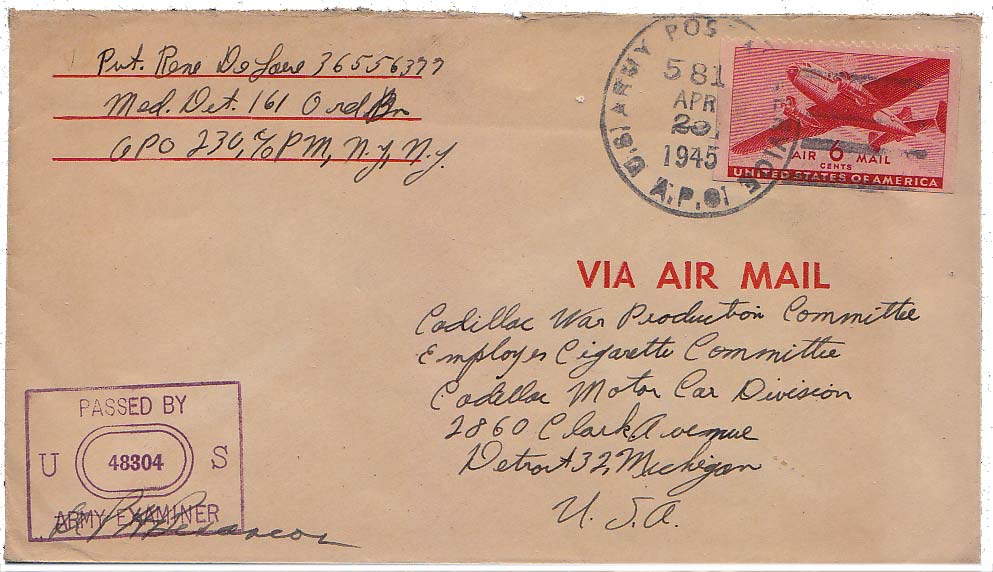 Pvt. Rene DeLaere 36556377
Med. Det. 161 Ord Bn
APO 230, c/o PM, N.Y., N.Y.
U.S. ARMY POSTAL SERVICE
581
APR
1945
A.P.O.
AIR 6 MAIL
CENTS
UNITED STATES OF AMERICA
VIA AIR MAIL
Cadillac War Production Committee
Employes Cigarette Committee
Cadillac Motor Car Division
2860 Clark Avenue
Detroit 32, Michigan
U.S.A.
PASSED BY
U 48304 S
ARMY EXAMINER